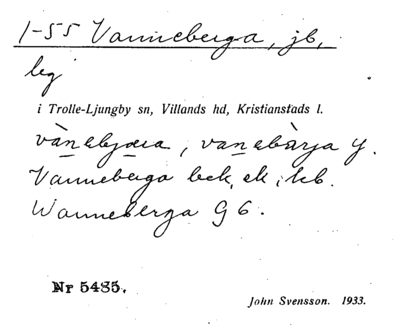 1-55 Vanneberga, jb,
beg
i Trolle-Ljungby sn, Villands hd, Kristianstads l.
vànebjæra, vanebàrja y.
Vanneberga beck. ek. i kb.
Wanneberga G 6.
Nr 5485.
John Svensson. 1933.